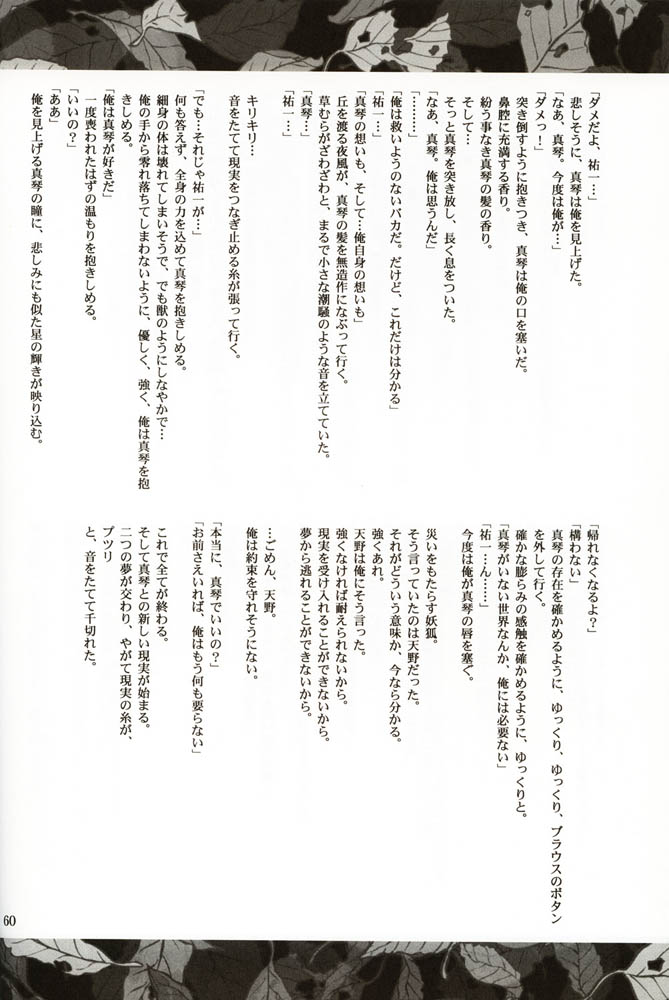 「ダメだよ、祐一…」
悲しそうに、真琴は俺を見上げた。
「なあ、真琴。今度は俺が…」
「ダメっ！」
突き倒すように抱きつき、真琴は俺の口を塞いだ。
鼻腔に充満する香り。
紛う事なき真琴の髪の香り。
そして…
そっと真琴を突き放し、長く息をついた。
「なあ、真琴。俺は思うんだ」
「………」
「俺は救いようのないバカだ。だけど、これだけは分かる」
「祐一…」
「真琴の想いも、そして…俺自身の想いも」
丘を渡る夜風が、真琴の髪を無造作になぶって行く。
草むらがざわざわと、まるで小さな潮騒のような音を立てていた。
「真琴…」
「祐一…」
キリキリ…
音をたてて現実をつなぎ止める糸が張って行く。
「でも…それじゃ祐一が…」
何も答えず、全身の力を込めて真琴を抱きしめる。
細身の体は壊れてしまいそうで、でも獣のようにしなやかで…
俺の手から零れ落ちてしまわないように、優しく、強く、俺は真琴を抱
きしめる。
「俺は真琴が好きだ」
一度喪われたはずの温もりを抱きしめる。
「いいの？」
「ああ」
俺を見上げる真琴の瞳に、悲しみにも似た星の輝きが映り込む。
「帰れなくなるよ？」
「構わない」
真琴の存在を確かめるように、ゆっくり、ゆっくり、ブラウスのボタン
を外して行く。
確かな膨らみの感触を確かめるように、ゆっくりと。
「真琴がいない世界なんか、俺には必要ない」
「祐一…ん……」
今度は俺が真琴の唇を塞ぐ。
災いをもたらす妖狐。
そう言っていたのは天野だった。
それがどういう意味か、今なら分かる。
強くあれ。
天野は俺にそう言った。
強くなければ耐えられないから。
現実を受け入れることができないから。
夢から逃れることができないから。
…ごめん、天野。
俺は約束を守れそうにない。
「本当に、真琴でいいの？」
「お前さえいれば、俺はもう何も要らない」
これで全てが終わる。
そして真琴との新しい現実が始まる。
二つの夢が交わり、やがて現実の糸が、
プツリ
と、音をたてて千切れた。
60